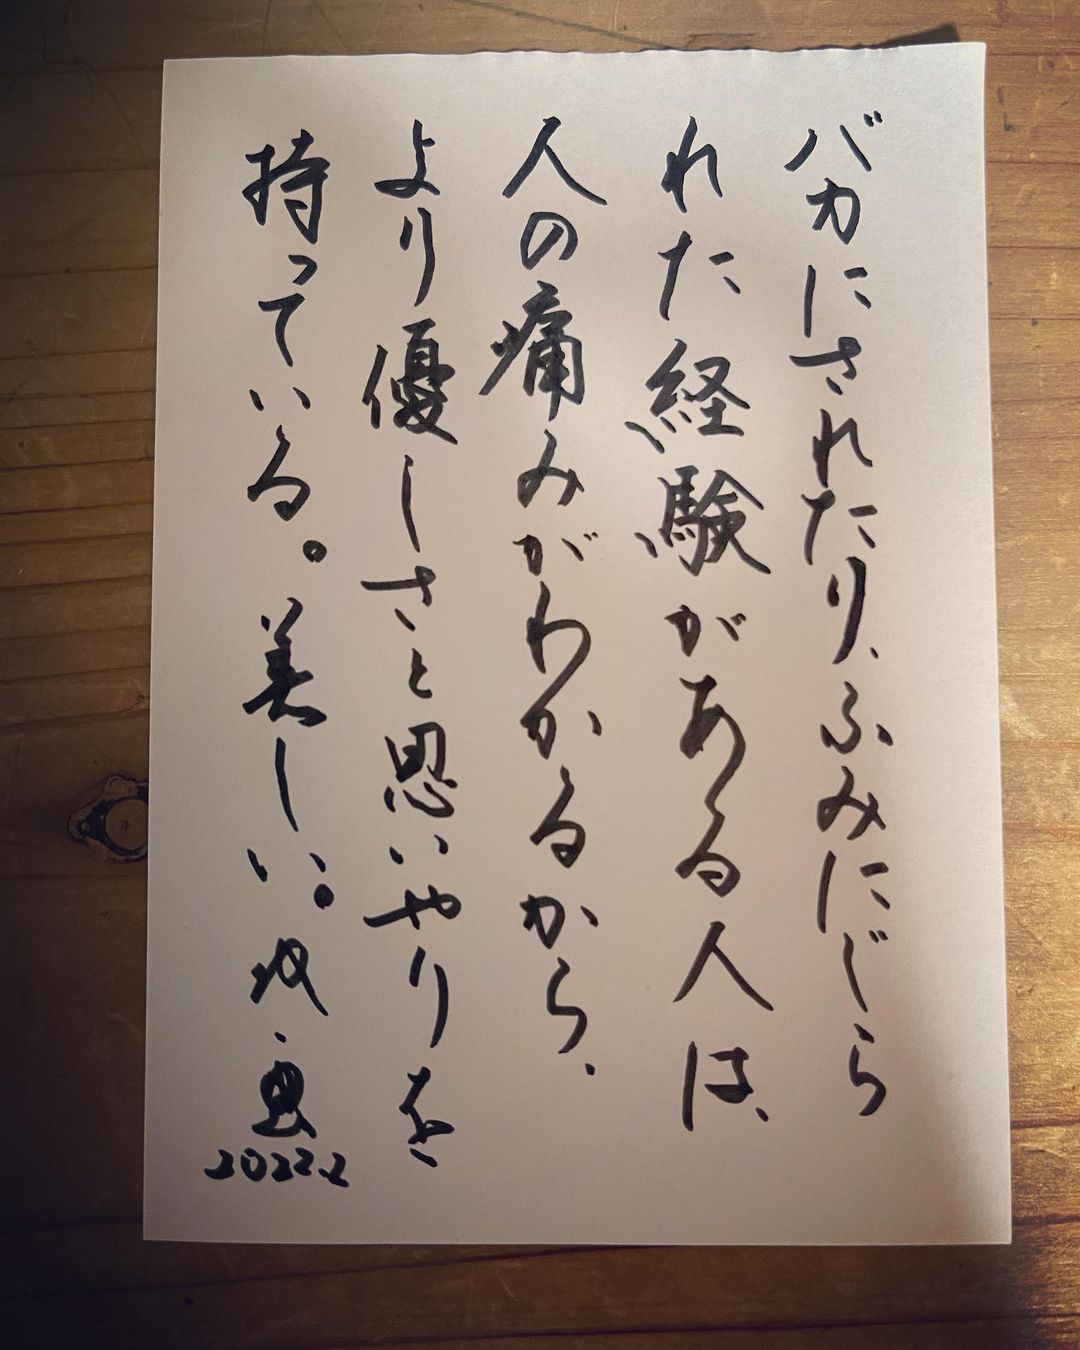 バカにされたり、ふみにじら
れた経験がある人は、
人の痛みがわかるから、
より優しさと思いやりを
持っている。美しい。
2022.2